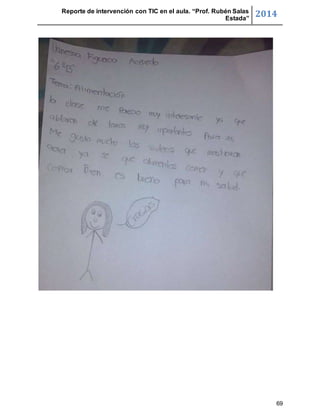 Reporte de intervención con TIC en el aula. “Prof. Rubén Salas
Estada”
2014
Vanessa Figueroa Acevedo
Tema: Alimentación
la clase me Parecio muy interesante ya que
ablaron de temas muy importantes Para mi
Me gusta mucho los videos que mostraron
ya se que alimentos comer y que
comer Bien es bueno para mi salud.
69